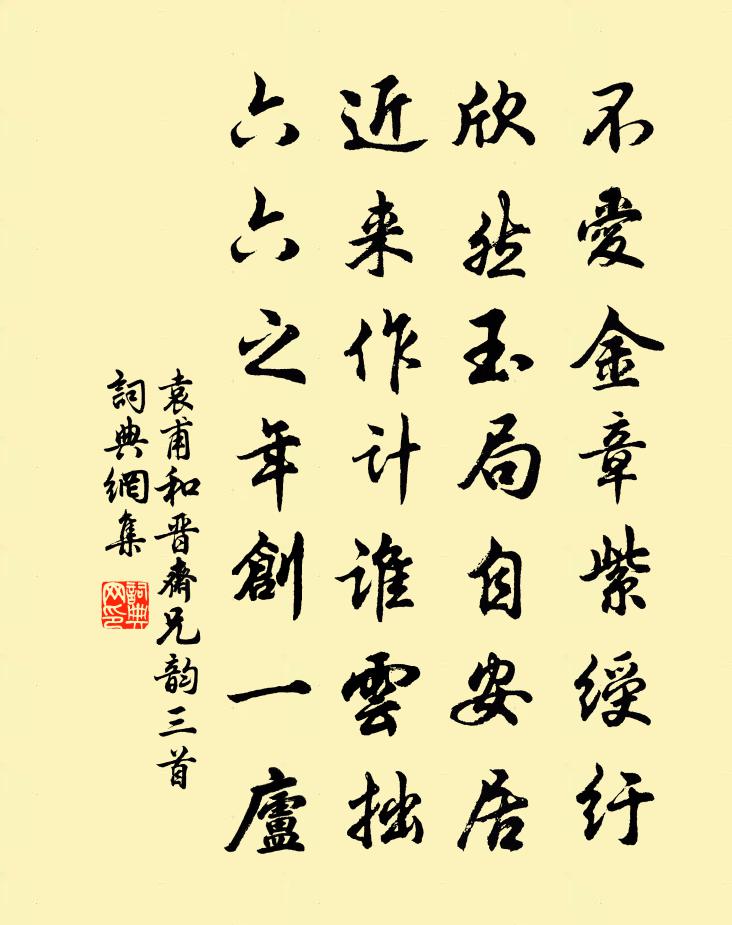 不愛金章紫綬紆
欣然玉局自安居
近来作計誰雲拙
六六之年創一廬
袁甫和晋齋兄韵三首
詞典網集
詞典網印